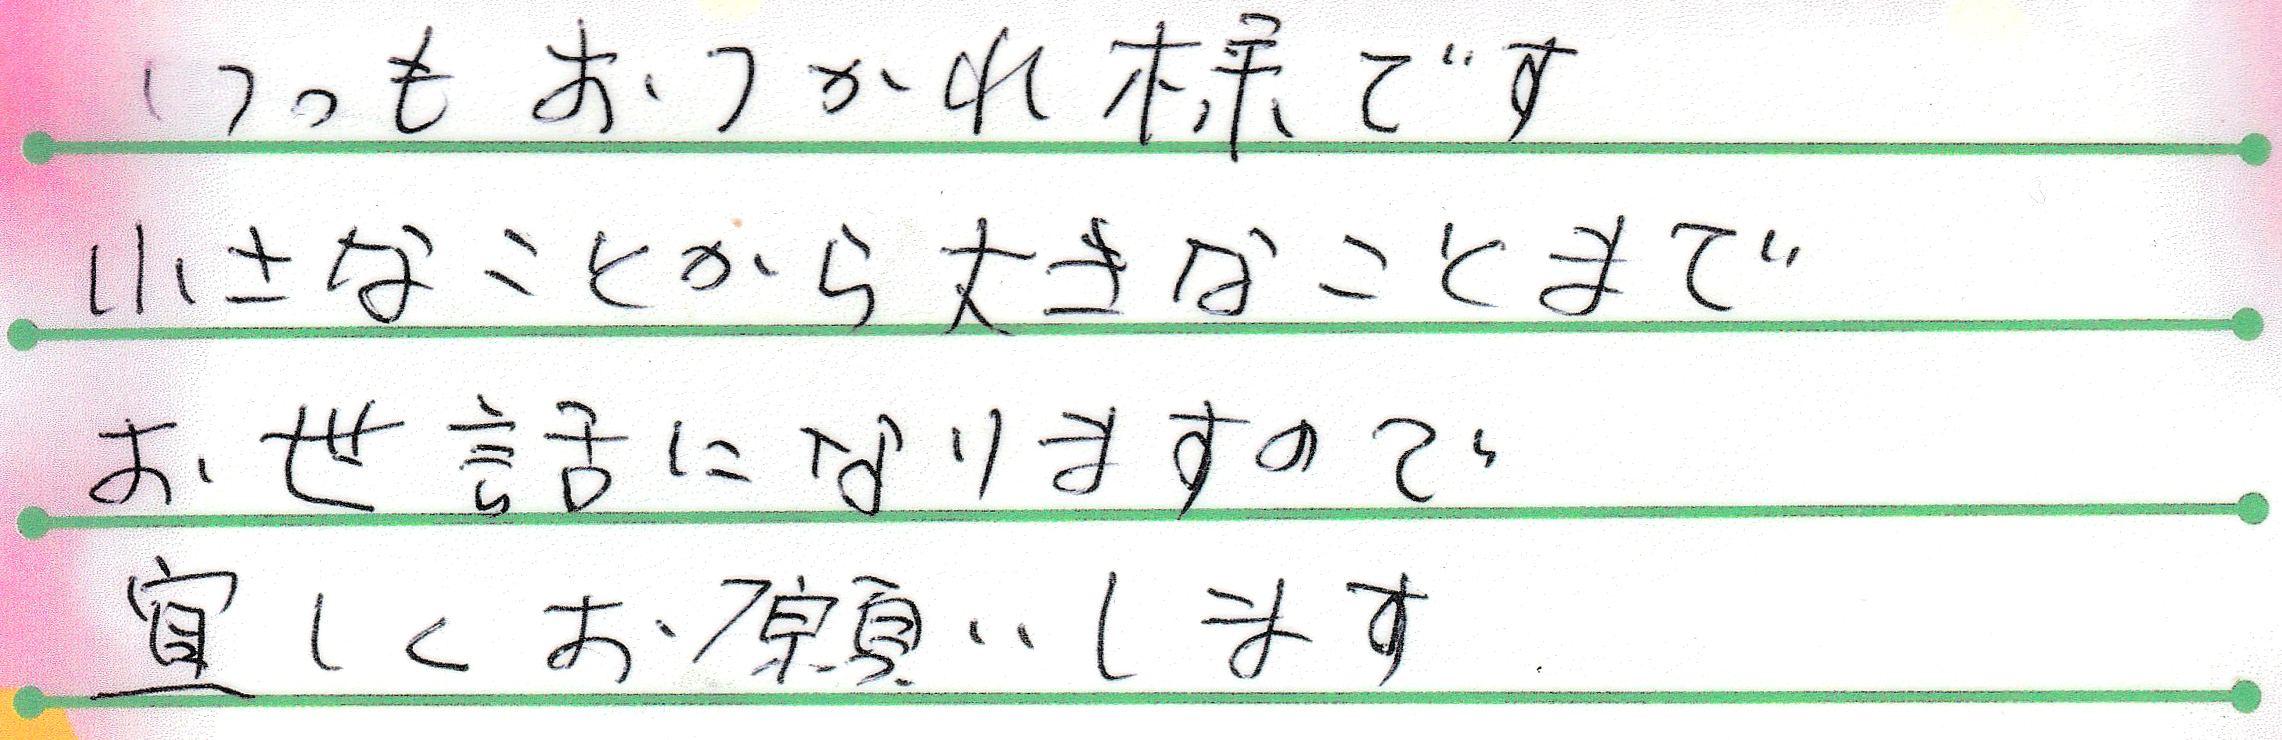 いつもおつかれ様です
小さなことから大きなことまで
お世話になりますので
宜しくお願いします